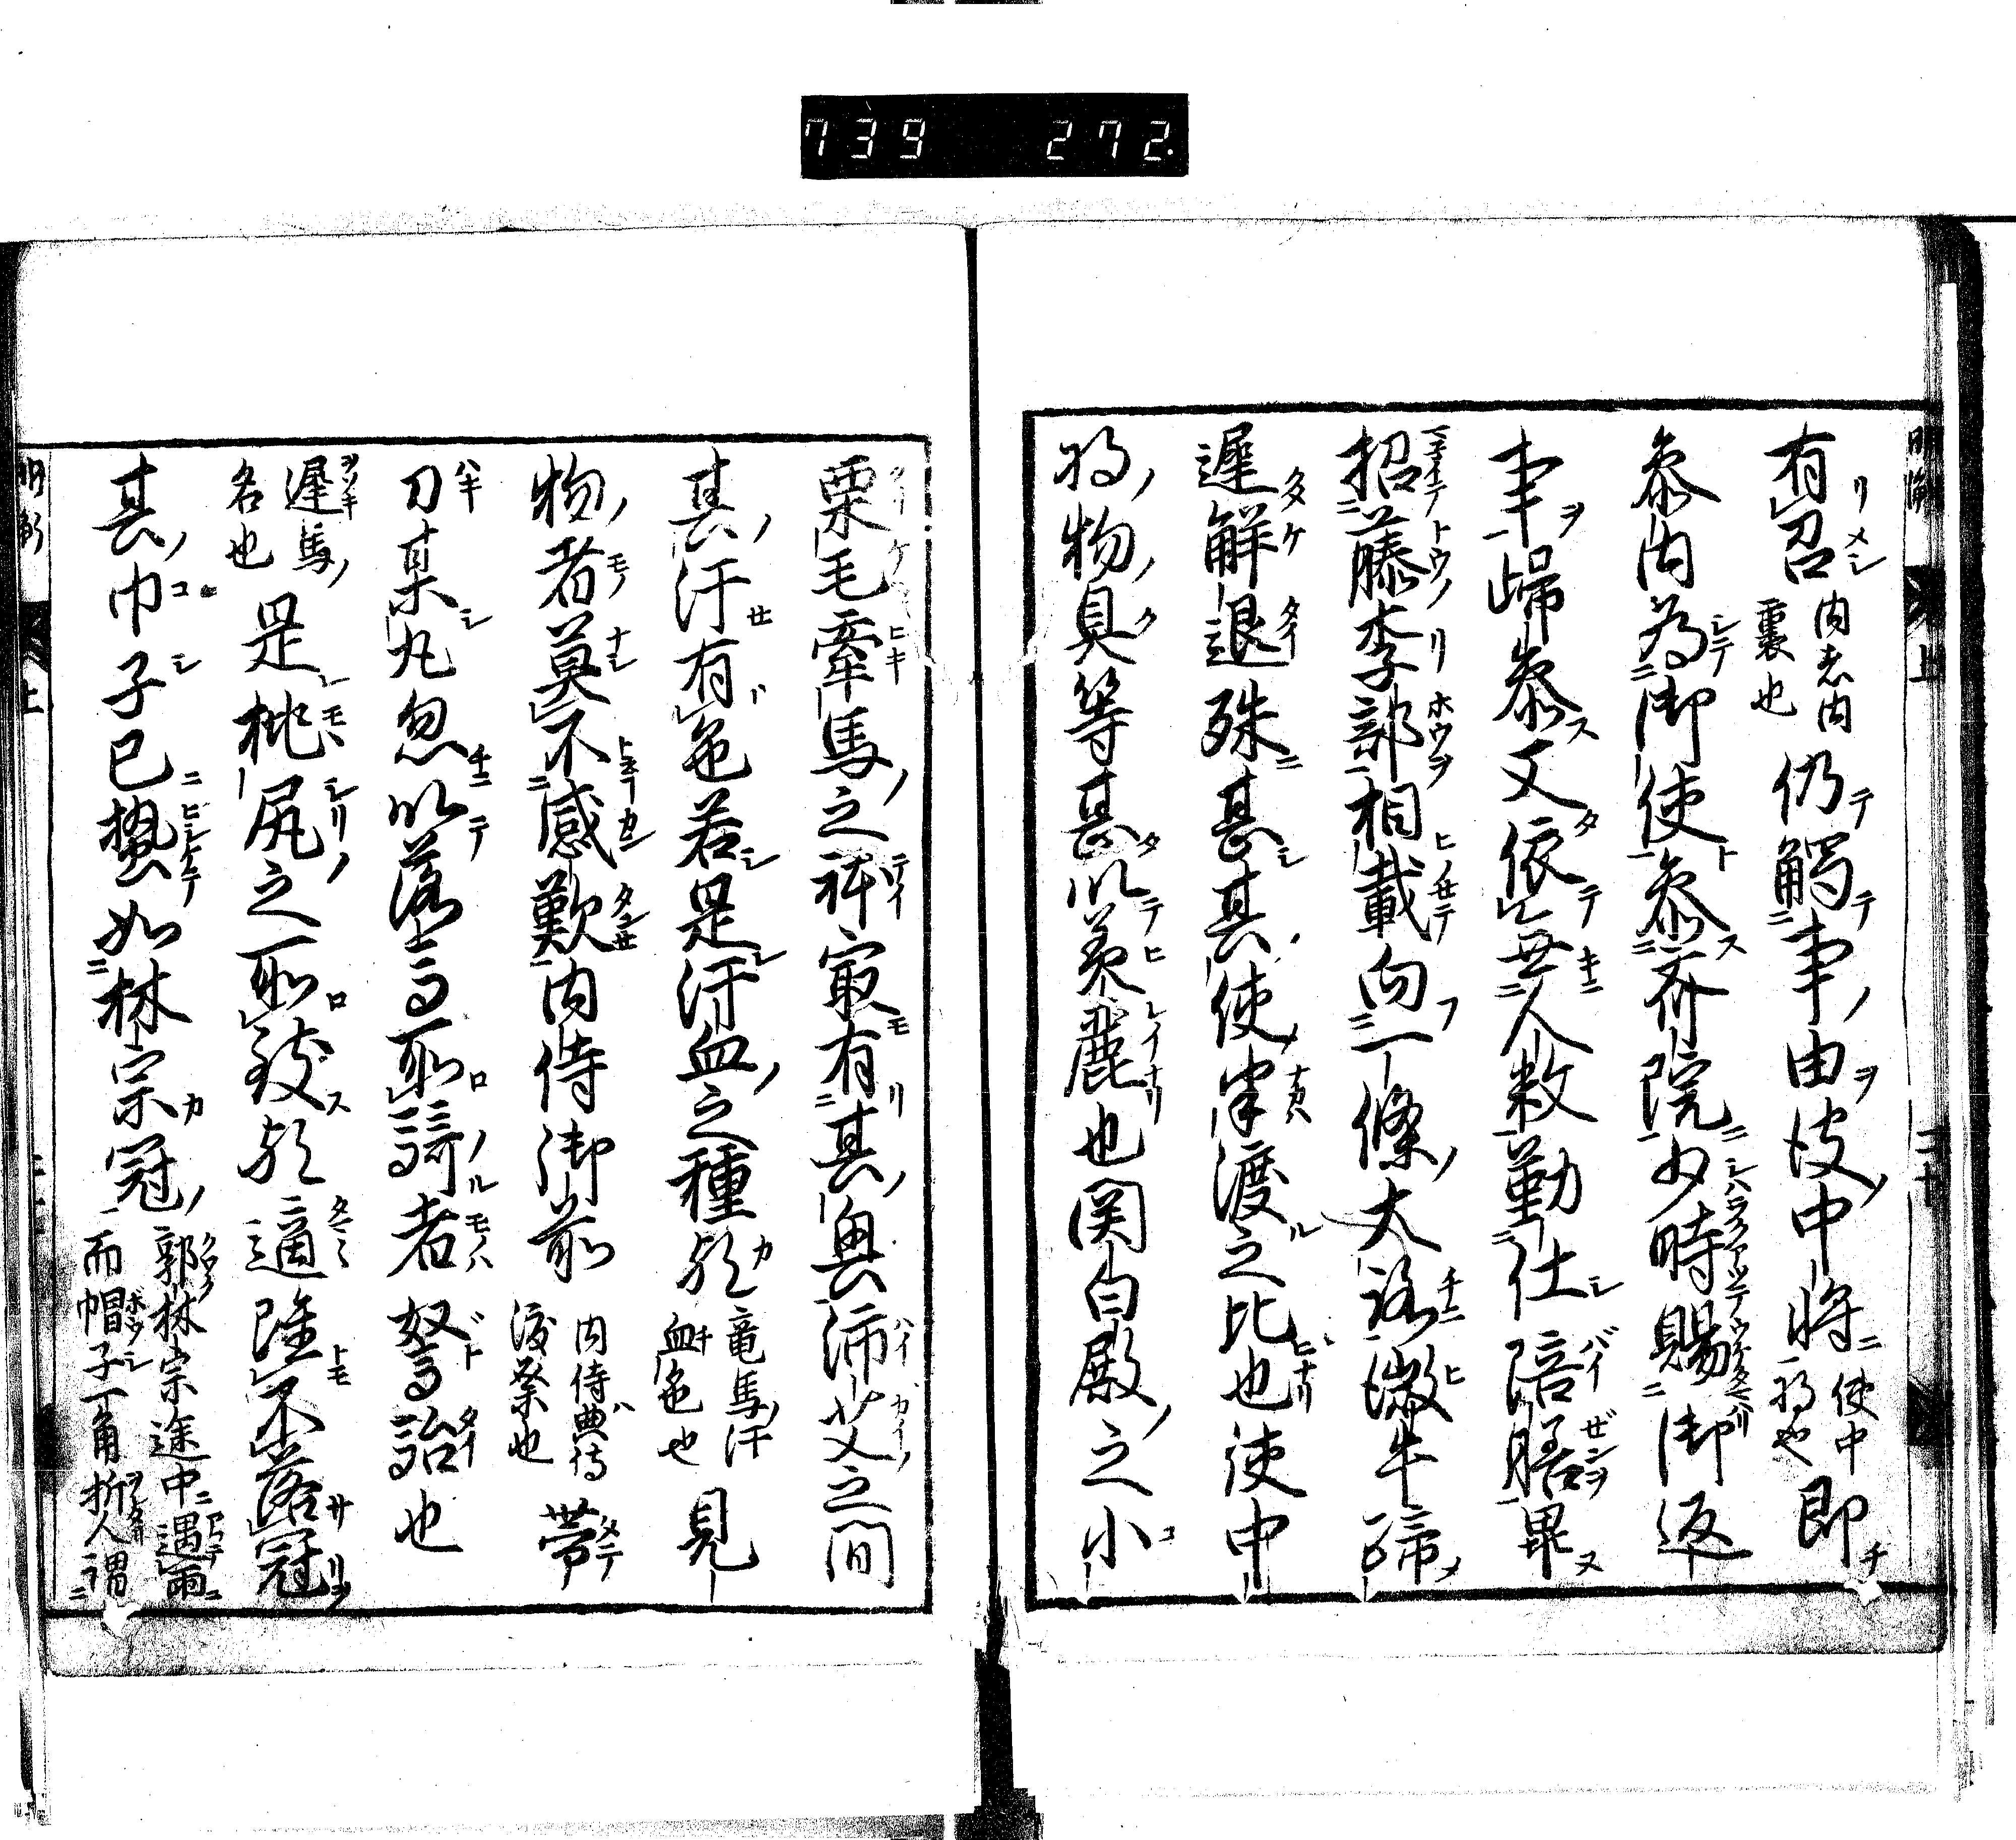 739 272.
有召内者内裏也仍觸事由彼中将使中将也即
参内為御使参斎院少時賜御返
事歸参又依無人數勤仕陪膳畢
招藤李部相載向一條大路微牛蹄
遲解退殊甚其使半渡之比也使中
将物具等甚以美麗也関白殿之小
栗毛牽馬之裨最有其興沛艾之間
其汗有色若是汗血之種欤竜馬汗血色也見
物者莫不感歎内侍御前内侍典侍後祭也帯
刀某丸忽以落馬所騎者駑駘也
遲馬名也是桃尻之所致欤適雖不落冠
其巾子已蟄如林宗冠郭林宗途中遇雨而帽子一角折人謂